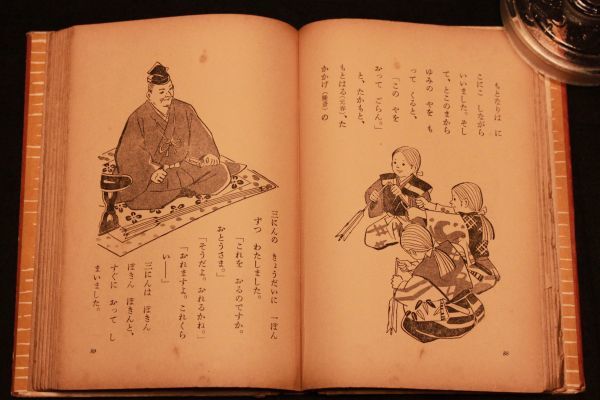 もとなりは に
こにこ しながら
いいました。そし
て、とこのまから
ゆみの やを も
って くると、
「この やを
おって ごらん。」
と、たかもと、
もとはる(元春)、た
かかげ(隆景)の
88
三にんの きょうだいに 一ぽん
ずつ わたしました。
「これを おるのですか。
おとうさま。」
「そうだよ。おれるかね。」
「おれますよ。これくら
い――」
三にんは ぽきん
ぽきん ぽきんと、
すぐに おって し
まいました。
89